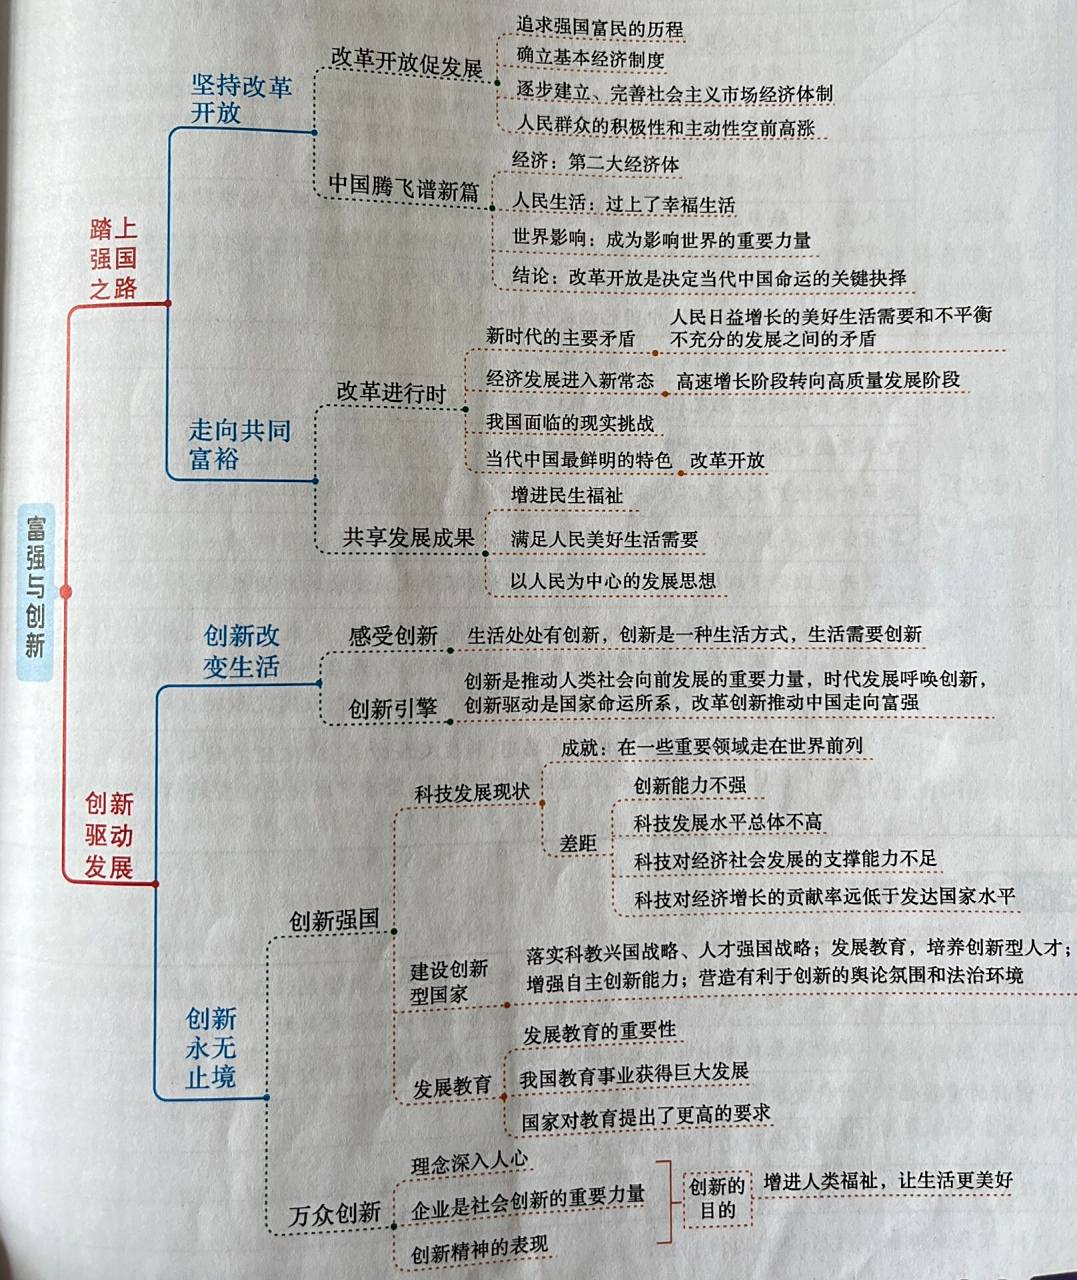 富强与创新
踏上
强国
之路
坚持改革
开放
改革开放促发展
追求强国富民的历程
确立基本经济制度
逐步建立、完善社会主义市场经济体制
人民群众的积极性和主动性空前高涨
中国腾飞谱新篇
经济：第二大经济体
人民生活：过上了幸福生活
世界影响：成为影响世界的重要力量
结论：改革开放是决定当代中国命运的关键抉择
走向共同
富裕
改革进行时
新时代的主要矛盾
人民日益增长的美好生活需要和不平衡
不充分的发展之间的矛盾
经济发展进入新常态
高速增长阶段转向高质量发展阶段
我国面临的现实挑战
当代中国最鲜明的特色
改革开放
共享发展成果
增进民生福祉
满足人民美好生活需要
以人民为中心的发展思想
创新
驱动
发展
创新改
变生活
感受创新
生活处处有创新，创新是一种生活方式，生活需要创新
创新引擎
创新是推动人类社会向前发展的重要力量，时代发展呼唤创新，
创新驱动是国家命运所系，改革创新推动中国走向富强
创新
永无
止境
创新强国
科技发展现状
成就：在一些重要领域走在世界前列
差距
创新能力不强
科技发展水平总体不高
科技对经济社会发展的支撑能力不足
科技对经济增长的贡献率远低于发达国家水平
建设创新
型国家
落实科教兴国战略、人才强国战略；发展教育，培养创新型人才；
增强自主创新能力；营造有利于创新的舆论氛围和法治环境
发展教育
发展教育的重要性
我国教育事业获得巨大发展
国家对教育提出了更高的要求
万众创新
理念深入人心
企业是社会创新的重要力量
创新精神的表现
创新的
目的
增进人类福祉，让生活更美好